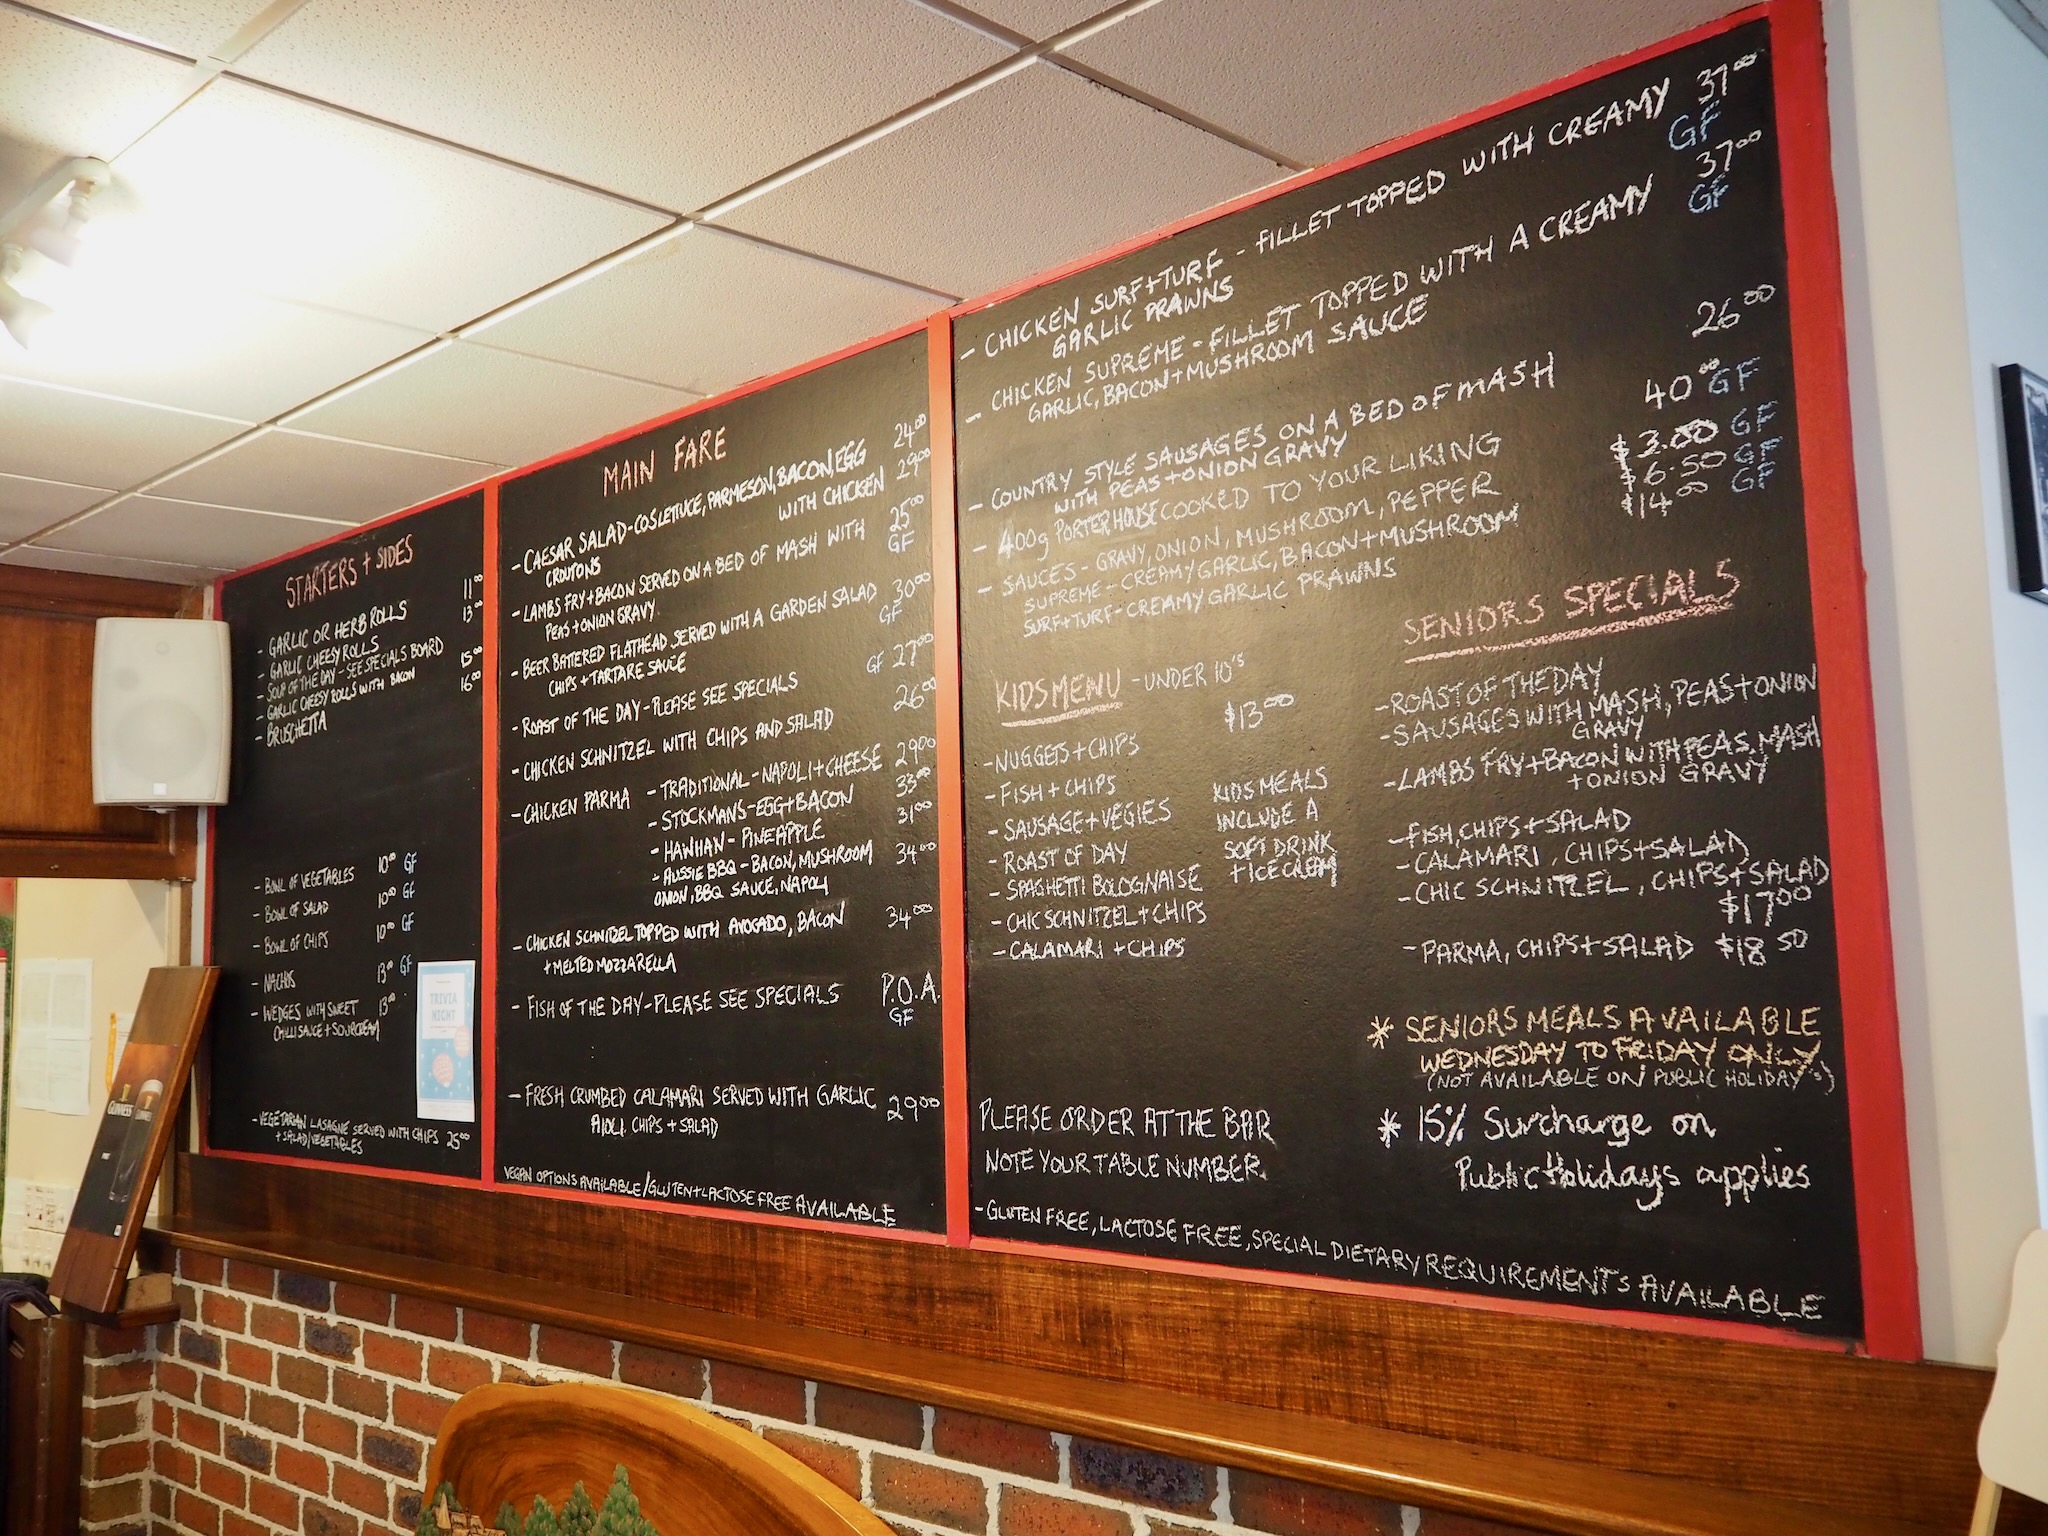 STARTERS + SIDES
- GARLIC OR HERB ROLLS 11⁰⁰
- GARLIC CHEESY ROLLS 13⁰⁰
- SOUP OF THE DAY - SEE SPECIALS BOARD
- GARLIC CHEESY ROLLS WITH BACON 15⁰⁰
- BRUSCHETTA 16⁰⁰
- BOWL OF VEGETABLES 10⁰⁰ GF
- BOWL OF SALAD 10⁰⁰ GF
- BOWL OF CHIPS 10⁰⁰ GF
- NACHOS 13⁰⁰ GF
- WEDGES WITH SWEET 13⁰⁰
CHILLI SAUCE + SOURCREAM
TRIVIA
NIGHT
- VEGETARIAN LASAGNE SERVED WITH CHIPS 25⁰⁰
+ SALAD/VEGETABLES
GUINNESS
MAIN FARE
- CAESAR SALAD - COS LETTUCE, PARMESON, BACON, EGG 24⁰⁰
CROUTONS WITH CHICKEN 29⁰⁰
- LAMBS FRY + BACON SERVED ON A BED OF MASH WITH 25⁰⁰
PEAS + ONION GRAVY GF
- BEER BATTERED FLATHEAD SERVED WITH A GARDEN SALAD 30⁰⁰
CHIPS + TARTARE SAUCE GF
- ROAST OF THE DAY - PLEASE SEE SPECIALS GF 27⁰⁰
- CHICKEN SCHNITZEL WITH CHIPS AND SALAD 26⁰⁰
- CHICKEN PARMA - TRADITIONAL - NAPOLI + CHEESE 29⁰⁰
- STOCKMANS - EGG + BACON 33⁰⁰
- HAWHAN - PINEAPPLE 31⁰⁰
- AUSSIE BBQ - BACON, MUSHROOM 34⁰⁰
ONION, BBQ SAUCE, NAPOLI
- CHICKEN SCHNITZEL TOPPED WITH AVOCADO, BACON 34⁰⁰
+ MELTED MOZZARELLA
- FISH OF THE DAY - PLEASE SEE SPECIALS P.O.A.
GF
- FRESH CRUMBED CALAMARI SERVED WITH GARLIC 29⁰⁰
AIOLI CHIPS + SALAD
VEGAN OPTIONS AVAILABLE/GLUTEN + LACTOSE FREE AVAILABLE
- CHICKEN SURF + TURF - FILLET TOPPED WITH CREAMY 37⁰⁰
GARLIC PRAWNS GF
- CHICKEN SUPREME - FILLET TOPPED WITH A CREAMY 37⁰⁰
GARLIC, BACON + MUSHROOM SAUCE GF
- COUNTRY STYLE SAUSAGES ON A BED OF MASH 26⁰⁰
WITH PEAS + ONION GRAVY
- 400g PORTERHOUSE COOKED TO YOUR LIKING 40⁰⁰ GF
- SAUCES - GRAVY, ONION, MUSHROOM, PEPPER $3.00 GF
SUPREME - CREAMY GARLIC, BACON + MUSHROOM $6.50 GF
SURF + TURF - CREAMY GARLIC PRAWNS $14⁰⁰ GF
KIDS MENU - UNDER 10'S
$13⁰⁰
- NUGGETS + CHIPS
- FISH + CHIPS
- SAUSAGE + VEGIES
- ROAST OF DAY
- SPAGHETTI BOLOGNAISE
- CHIC SCHNITZEL + CHIPS
- CALAMARI + CHIPS
KIDS MEALS
INCLUDE A
SOFT DRINK
+ ICE CREAM
PLEASE ORDER AT THE BAR
NOTE YOUR TABLE NUMBER.
SENIORS SPECIALS
- ROAST OF THE DAY
- SAUSAGES WITH MASH, PEAS + ONION
GRAVY
- LAMBS FRY + BACON WITH PEAS, MASH
+ ONION GRAVY
- FISH, CHIPS + SALAD
- CALAMARI, CHIPS + SALAD
- CHIC SCHNITZEL, CHIPS + SALAD
$17⁰⁰
- PARMA, CHIPS + SALAD $18⁵⁰
* SENIORS MEALS AVAILABLE
WEDNESDAY TO FRIDAY ONLY
(NOT AVAILABLE ON PUBLIC HOLIDAY'S)
* 15% Surcharge on
Public Holidays applies
- GLUTEN FREE, LACTOSE FREE, SPECIAL DIETARY REQUIREMENTS AVAILABLE